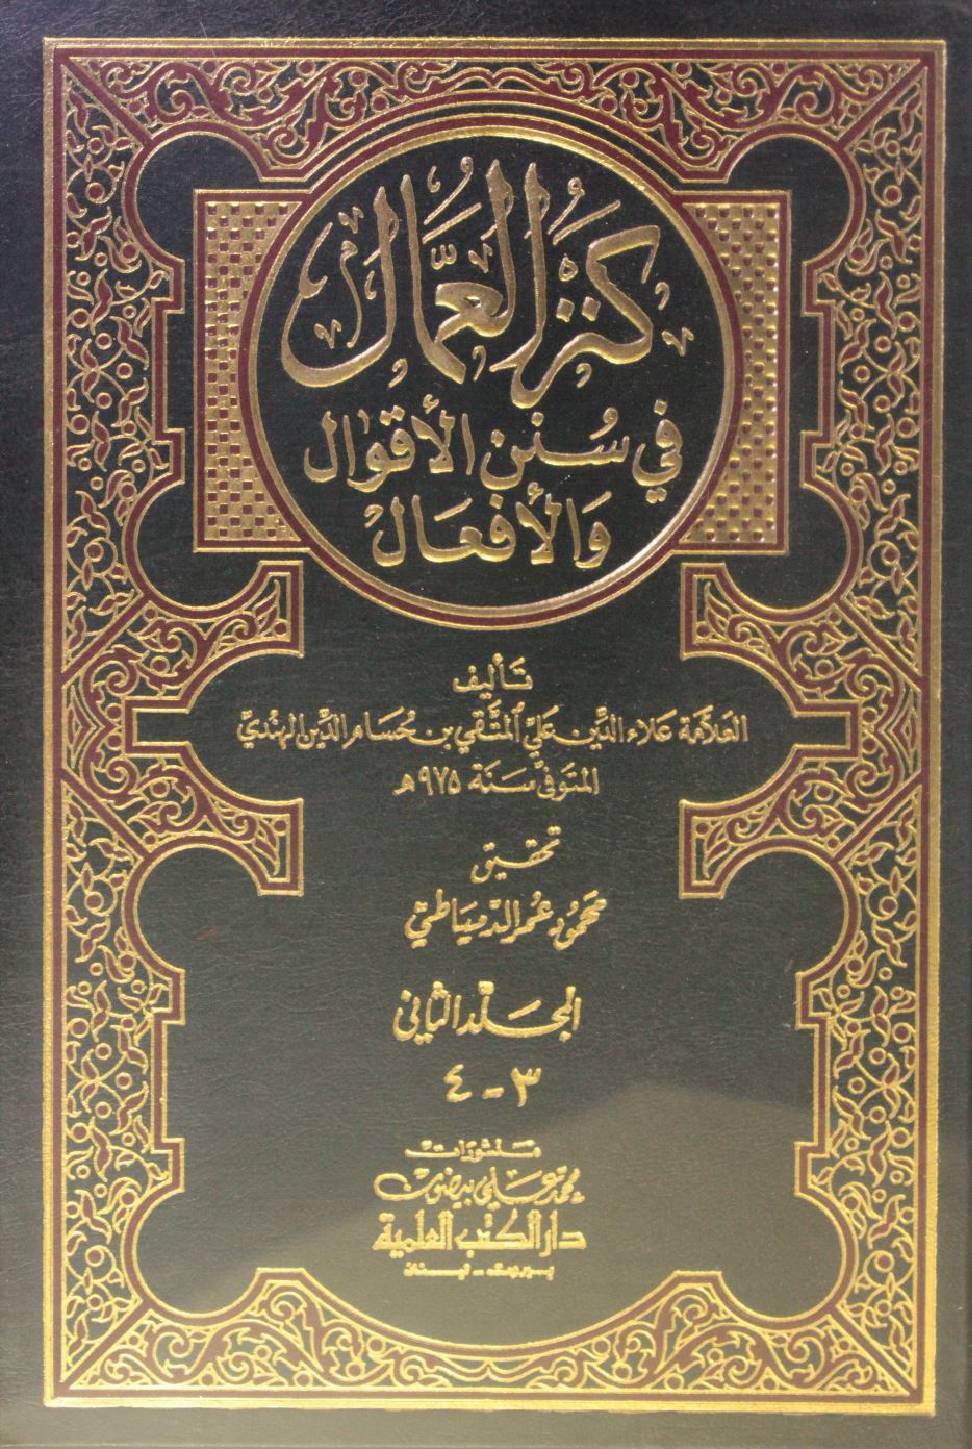 كنز العمال
في سنن الأقوال
والأفعال
تأليف
العلامة علاء الدين علي المتقي بن حسام الدين الهندي
المتوفى سنة ٩٧٥ه
تحقيق
محمود عمر الدمياطي
المجلد الثاني
٣ - ٤
منشورات
محمد علي بيضون
دار الكتب العلمية
بيروت - لبنان